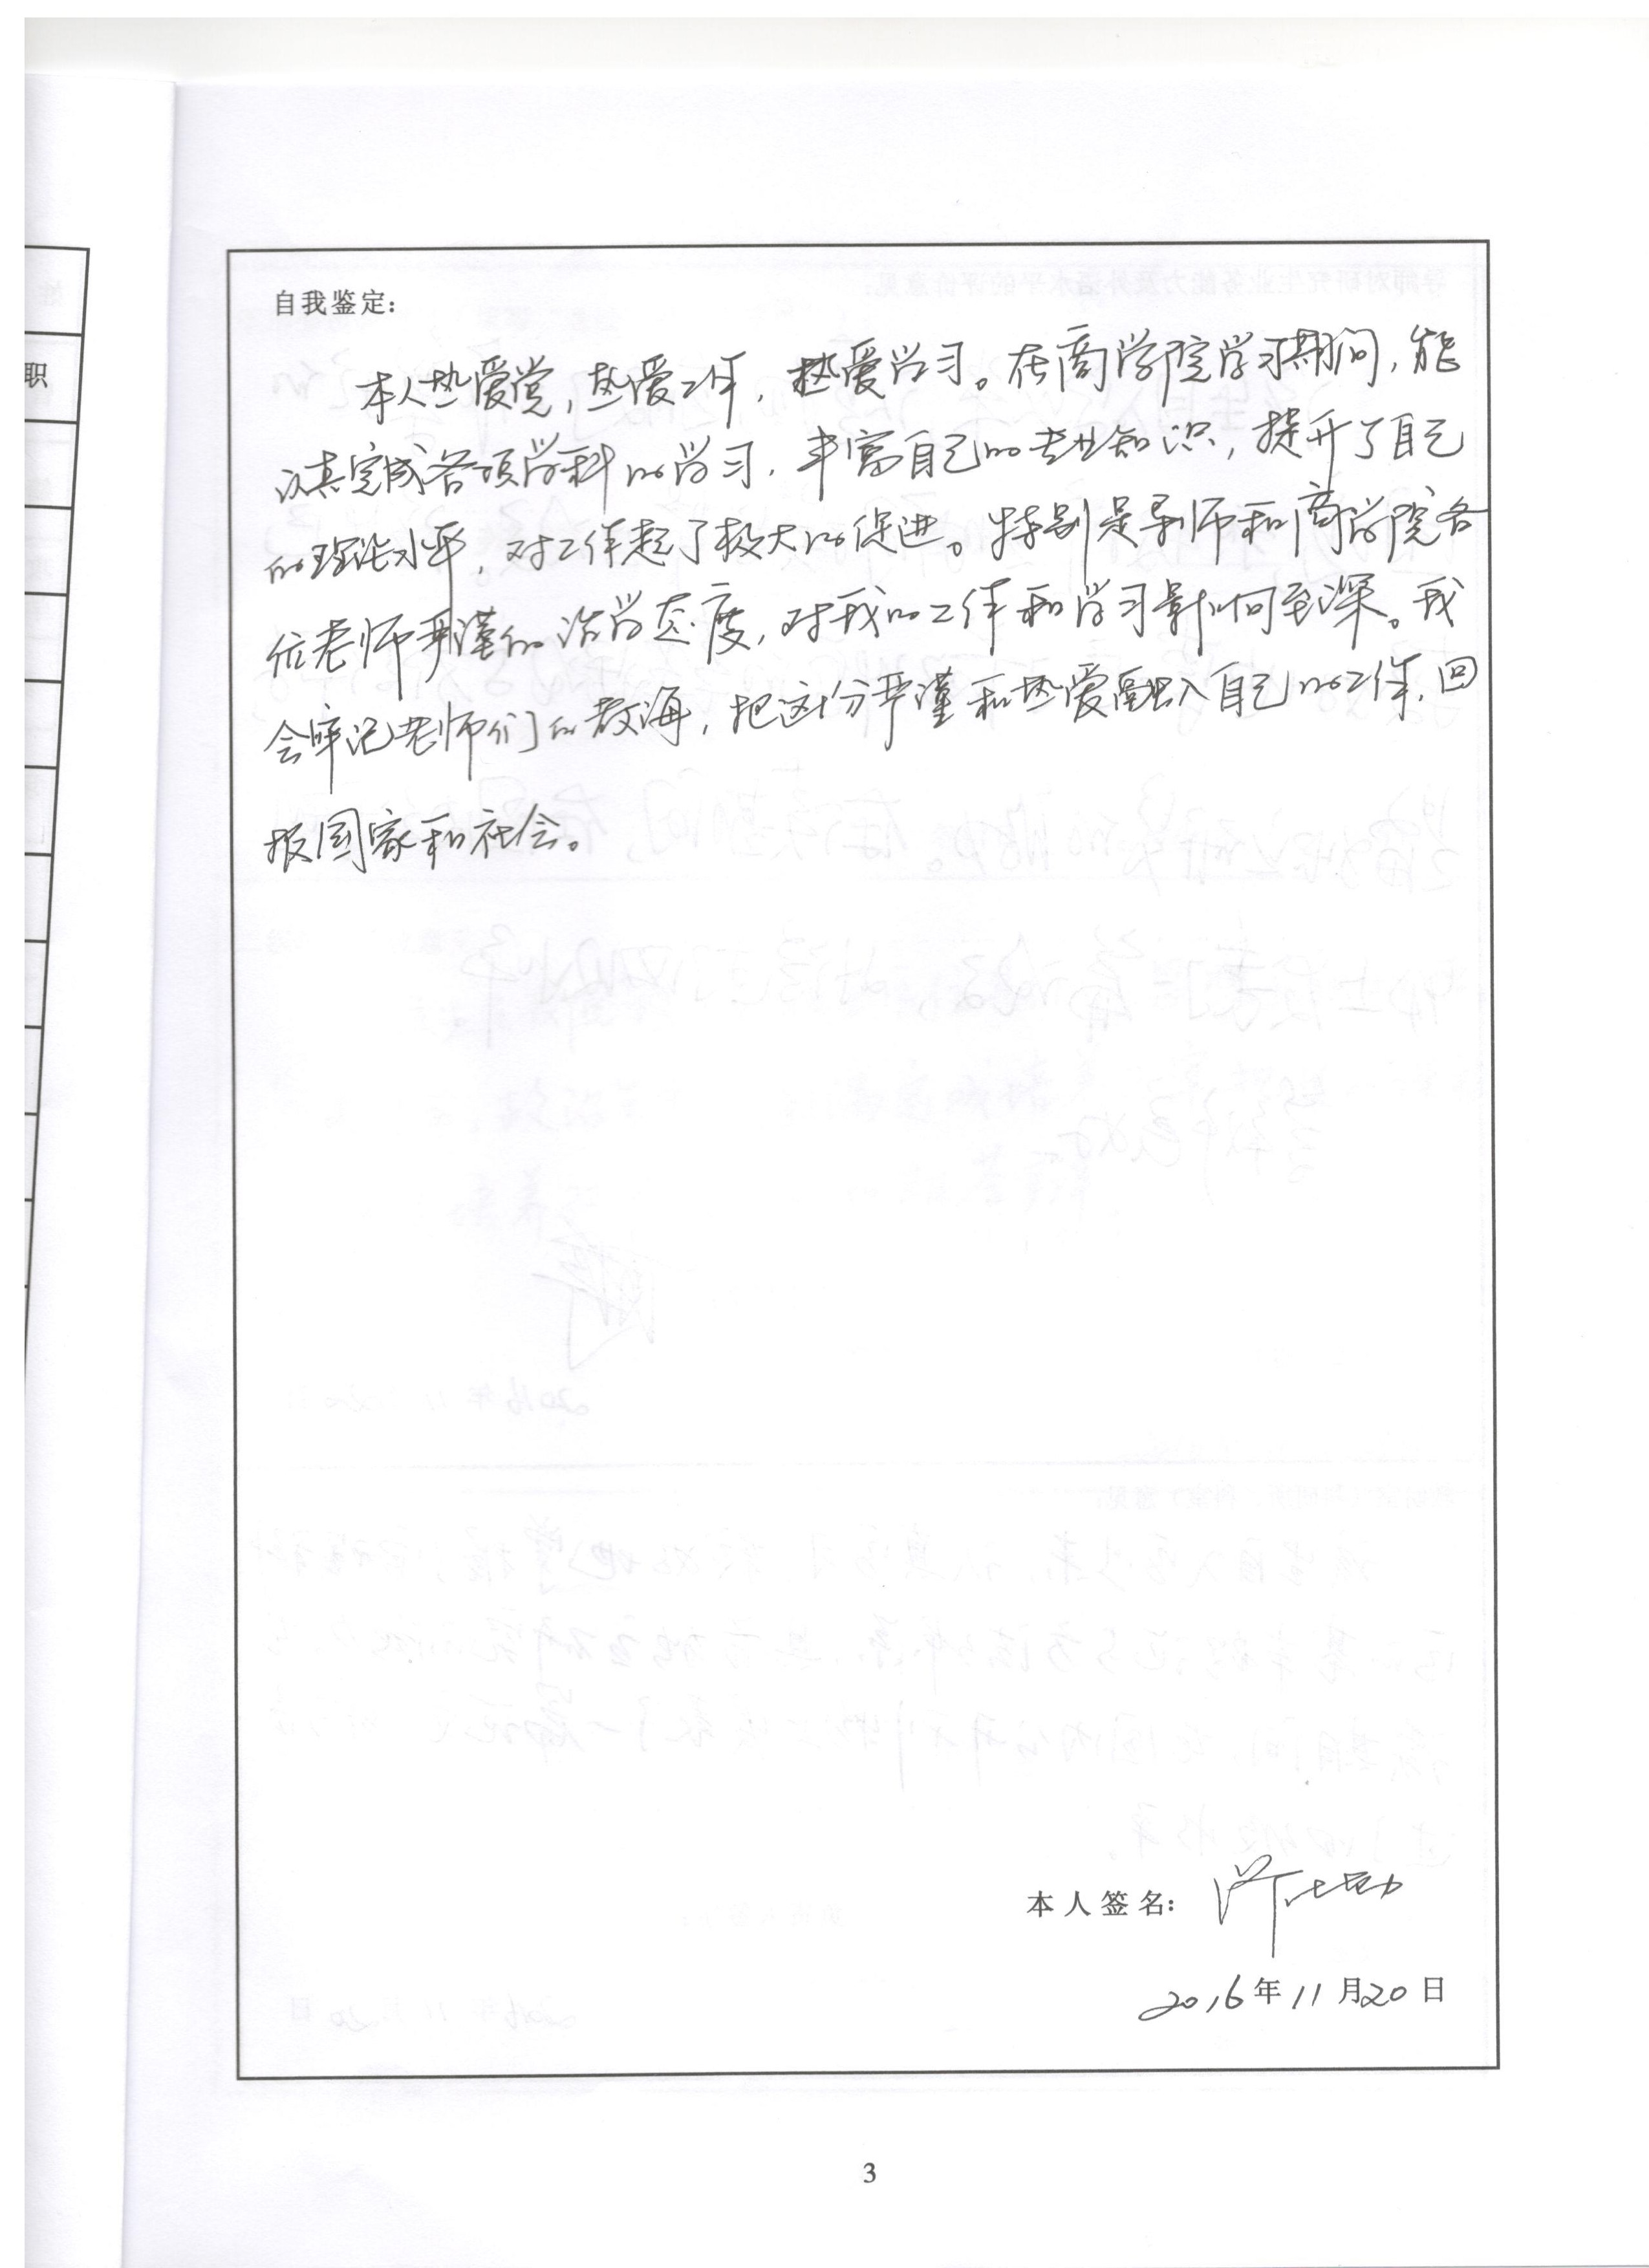 职
自我鉴定：
本人热爱党，热爱工作，热爱学习。在商学院学习期间，能
认真完成各项学科的学习，丰富自己的专业知识，提升了自己
的理论水平，对工作起了极大的促进。特别是导师和商学院各
位老师严谨的治学态度，对我的工作和学习影响至深。我
会牢记老师们的教海，把这份严谨和热爱融入自己的工作，回
报国家和社会。
本人签名：
2016年11月20日
3